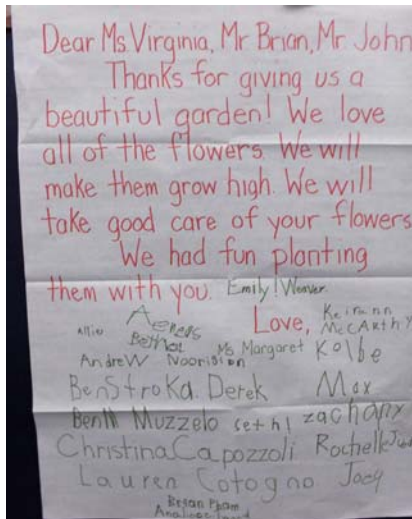 Dear Ms. Virginia, Mr Brian, Mr. John
Thanks for giving us a
beautiful garden! We love
all of the flowers. We will
make them grow high. We will
take good care of your flowers
We had fun planting
them with you. Emily! Weaver
Love, Keirann McCarthy
Allie
Ms Margaret Kolbe
Andrew Noorisian
Ben Stroka. Derek Max
Ben M Muzzelo seth! zachary
Christina Capozzoli Rochelle
Lauren Cotogno Joey
Bryan Pham